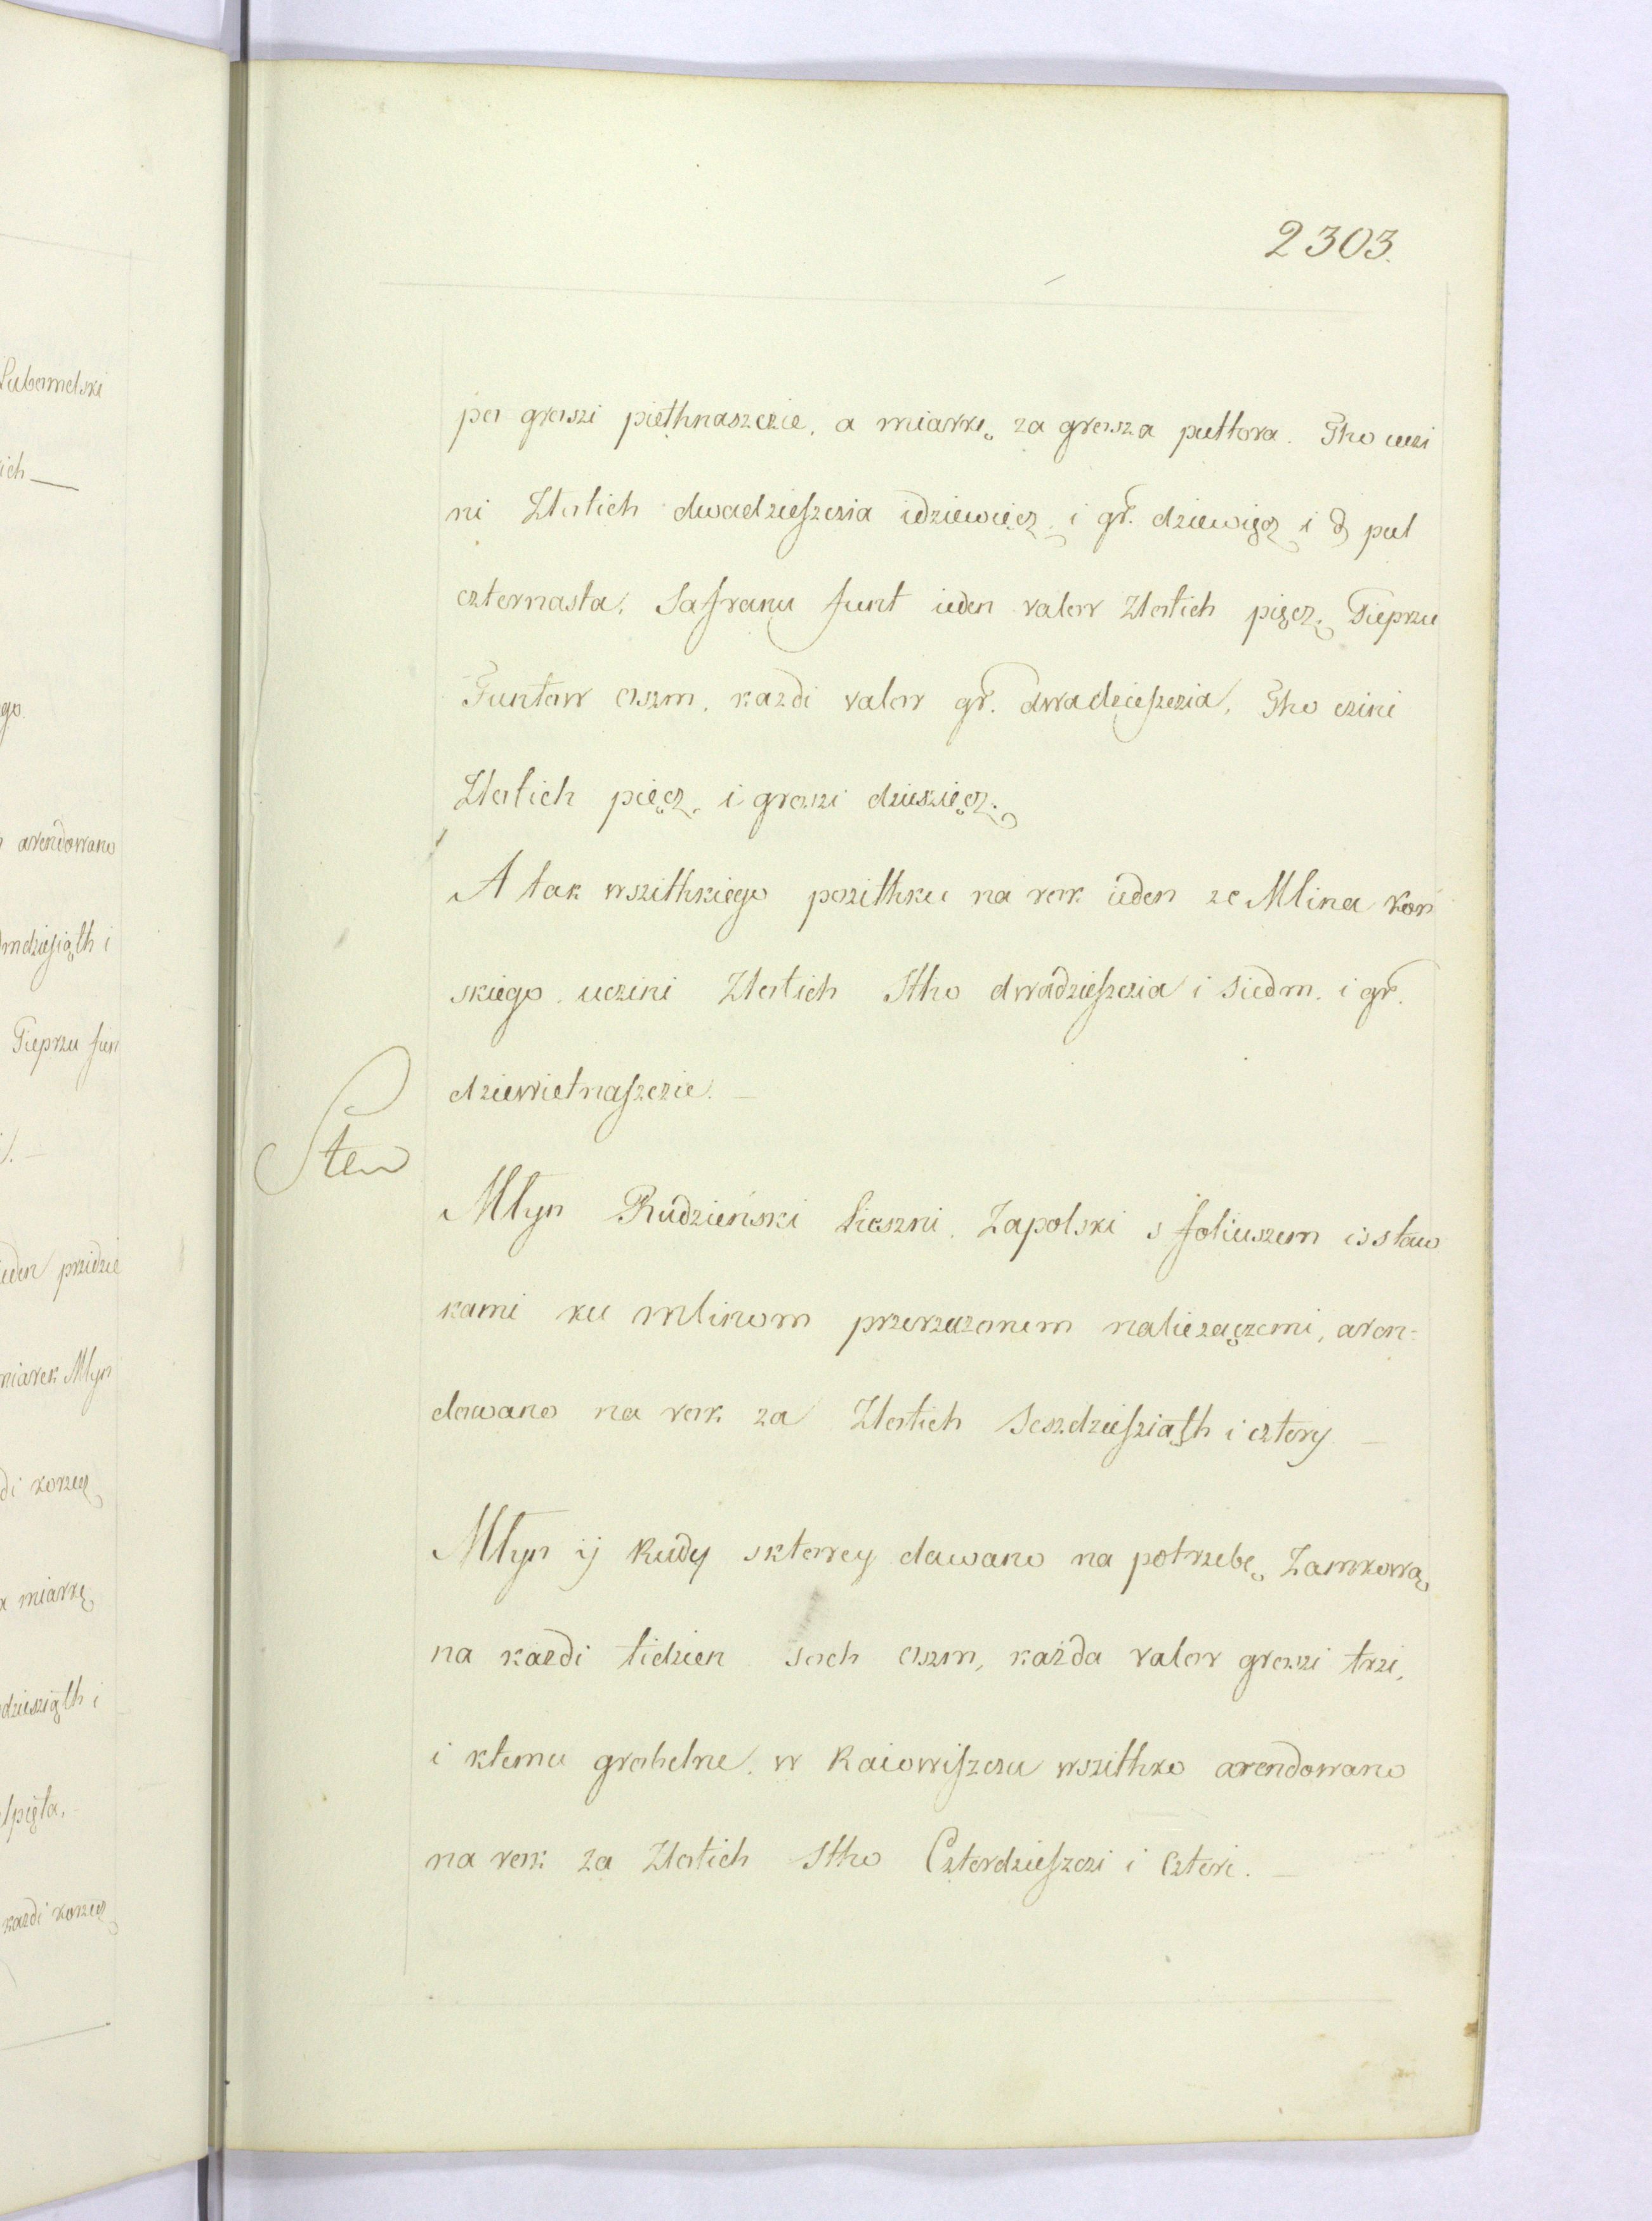 2303.
po groszi piethnaszczie, a miarkę za grosza puttora. Tho uczi
ni Zlotich dwadzieszczia i dziewięcz, i gr. dziewięcz i d, pul
czternasta. Safranu funt ieden valor Zlotich pięcz. Pieprzu
Funtow oszm, kazdi valor gr. dwadzieszczia. Tho czini
Zlotich pięcz, i groszi dziesięcz.
A tak wszithkiego pozithku na rok ieden ze Mlina kon
skiego uczini Zlotich Stho dwadzieszczia i siedm. i gr.
dziewietnaszczie. —
Młyn Rudzieński lieszni. Zapolski s foliuszem i s staw
kami ku mlinom przerzeczonem naliezączemi, aren-
dowano na rok za Zlotich Seszdziesziąth i cztory —
Młyn ij Rudy sktorey dawano na potrzebę Zamkową
na kazdi tidzien soch oszm, każda valor groszi trzi,
i ktemu grobelne w Raiowiszczu wszithko arendowano
na rok za Zlotich Stho Czterdzieszczi i Czteri. —
Lubomelski
ich —
go
arendowano
mdziesiąth i
Pieprzu fun
ieden przidzie
miarek Młyn
di korzecz
a miarkę
dziesziąth i
kazdi korzecz